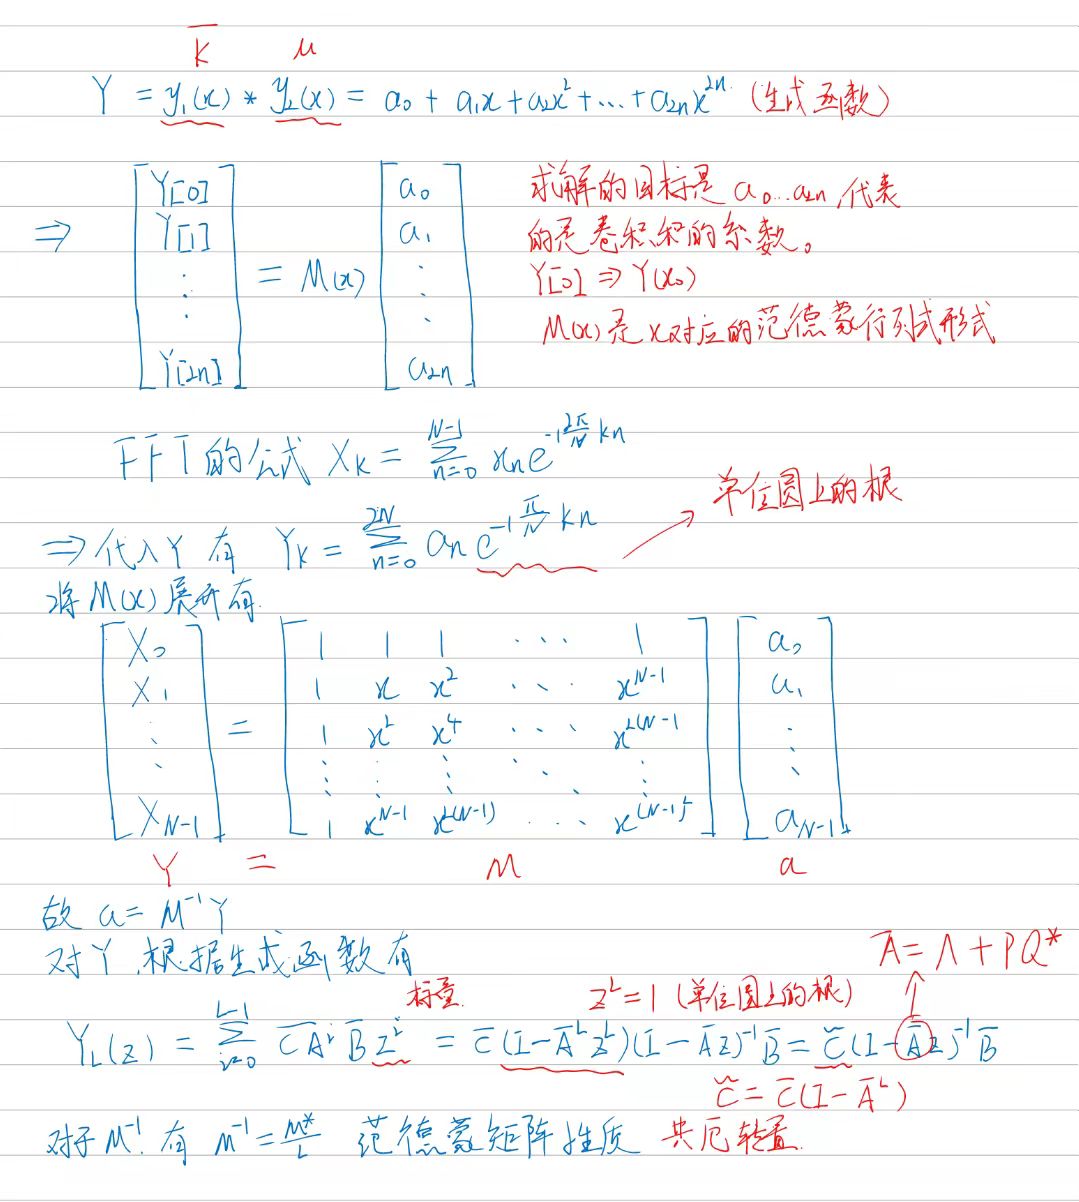 K̅ u
Y = y₁(x) * y₂(x) = a₀ + a₁x + a₂x² + ... + a₂ₙx²ⁿ (生成函数)
⇒ [Y[0] Y[1] ⋮ Y[2n]] = M(x) [a₀ a₁ ⋮ a₂ₙ]
求解的目标是 a₀...a₂ₙ,代表
的是卷积和的系数。
Y[0] ⇒ Y(x₀)
M(x)是x对应的范德蒙行列式形式
FFT的公式 X_K = Σ_{n=0}^{N-1} xₙe^{-i\frac{2π}{N}kn}
单位圆上的根
⇒ 代入Y 有 Y_K = Σ_{n=0}^{2N} aₙe^{-i\frac{π}{N}kn}
将M(x)展开有
X₀ 1 1 1 ... 1 a₀
X₁ 1 x x² ... x^{N-1} a₁
⋮ = 1 x² x⁴ ... x^{2(N-1)} ⋮
X_{N-1} 1 x^{N-1} x^{2(N-1)} ... x^{(N-1)²} a_{N-1}
Y = M a
故 a = M⁻¹Y
对Y,根据生成函数有
A̅ = Λ + PQ*
标量 z^L = 1 (单位圆上的根)
Y_L(z) = Σ_{i=0}^{L-1} C̅A̅^i B̅z^i = C̅(I-A̅^L z^L)(I-A̅z)⁻¹B̅ = C̃(I-A̅z)⁻¹B̅
C̃ = C̅(I-A̅^L)
对于M⁻¹有 M⁻¹ = \frac{M*}{L} 范德蒙矩阵性质 共厄转置